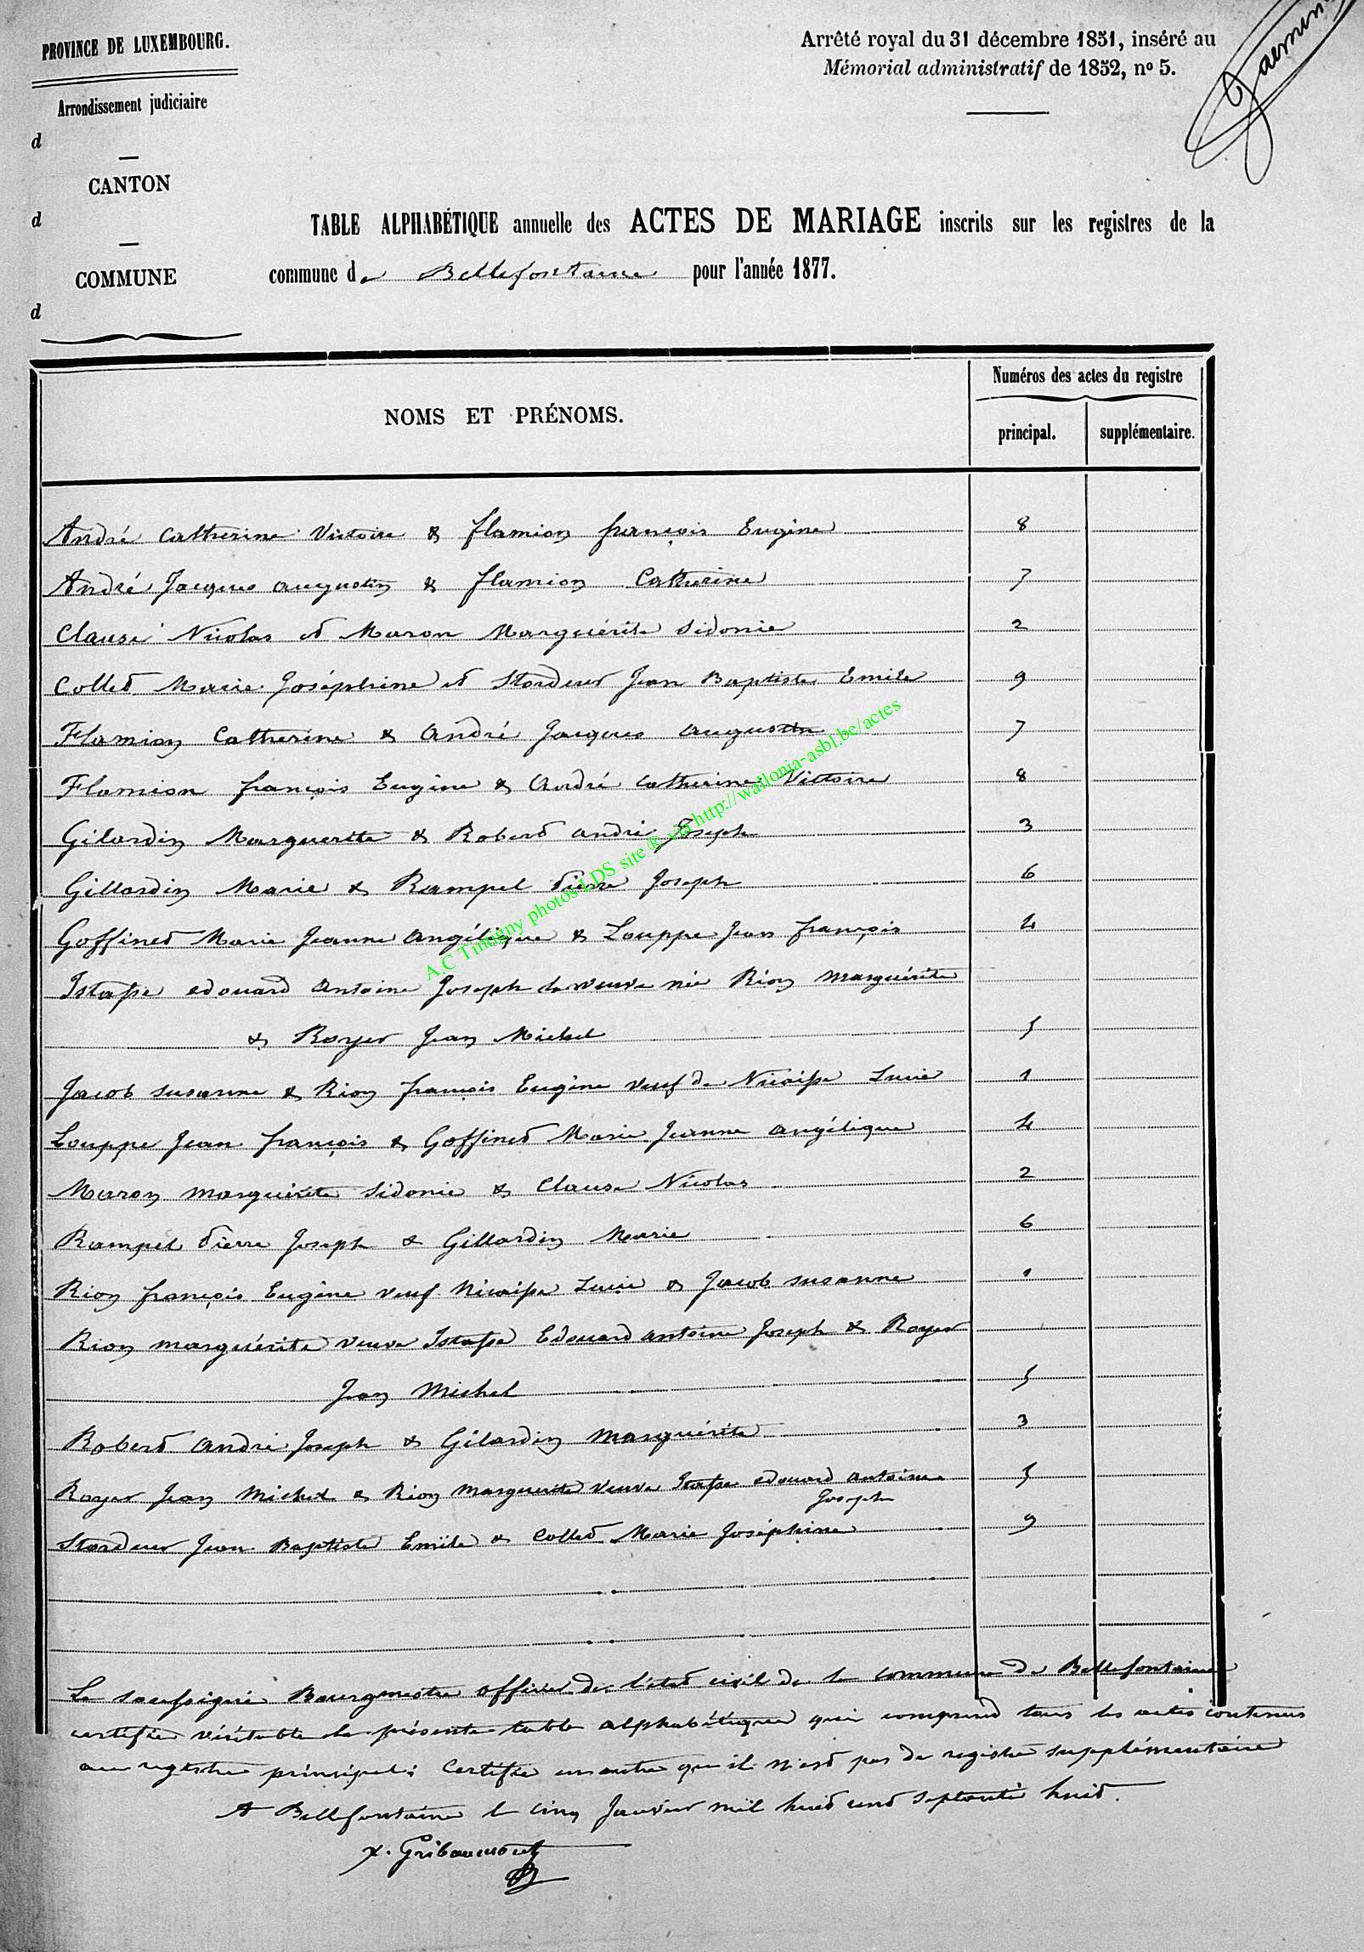 PROVINCE DE LUXEMBOURG.
Arrondissement judiciaire
d
CANTON
d
COMMUNE
d
Arrêté royal du 31 décembre 1851, inséré au
Mémorial administratif de 1852, nº 5.
TABLE ALPHABÉTIQUE annuelle des ACTES DE MARIAGE inscrits sur les registres de la
commune de Bellefontaine pour l'année 1877.
NOMS ET PRÉNOMS.
Numéros des actes du registre
principal. supplémentaire.
André Catherine Victoire & flamion françois Eugène 8
André Jacques augustin & flamion Catherine 7
Clause Nicolas et Maron Marguérite Sidonie 2
Collet Marie Joséphine et Stordeur Jean Baptiste Emile 9
Flamion Catherine & André Jacques augustin 7
Flamion françois Eugène & André Catherine Victoire 8
Gilardin Marguerite & Robert andré Joseph 3
Gillardin Marie & Rampel Pierre Joseph 6
Goffinet Marie Jeanne Angélique & Louppe Jean françois 4
Istasse edouard antoine Joseph la veuve née Rion Marguérite
& Royer Jean Michel 5
Jacob susanne & Rion françois Eugène veuf de Nicaisse Lucie 1
Louppe Jean françois & Goffinet Marie Jeanne angélique 4
Maron marguérite Sidonie & Clause Nicolas 2
Rampel Pierre Joseph & Gillardin Marie 6
Rion françois Eugène veuf Nicaisse Lucie & Jacob susanne 1
Rion marguérite veuve Istasse Edouard antoine Joseph & Royer
Jean Michel 5
Robert andré Joseph & Gilardin Marguérite 3
Royer Jean Michel & Rion Marguerite veuve Istasse edouard antoine 5
Joseph
Stordeur Jean Baptiste Emile & Collet Marie Joséphine 9
Le soussigné Bourgmestre officier de l'état civil de la commune de Bellefontaine
certifie véritable la présente table alphabétique qui comprend tous les actes contenus
au registre principal; Certifie en outre que il n'est pas de registre supplémentaire
A Bellefontaine le cinq Janvier mil huit cent septante huit.
X. Gribaumont
A.C Tintigny photos LDS site ® via http://wallonia-asbl.be/actes